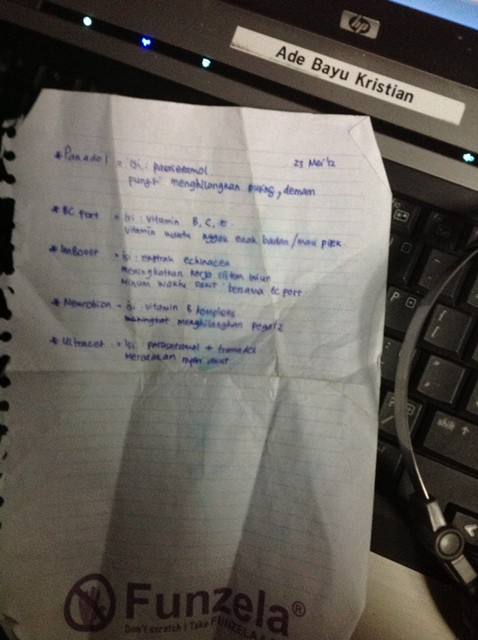 hp
Ade Bayu Kristian
23 Mei '12
* Panadol = isi : parasetamol
pungsi menghilangkan pusing, demam
* BC Fort = isi : vitamin B, C, E.
vitamin waktu nggak enak badan / mau pilek
* ImBoost = isi : extrak echinacea
meningkatkan kerja sistem imun
Minum waktu sakit bersama BC Fort
* Neurobion = isi : vitamin B kompleks
menghilangkan pegal2
* Ultracet = isi : parasetamol + tramadol
Meredakan nyeri
Funzela®
Don't scratch! Take FUNZELA
shift
P